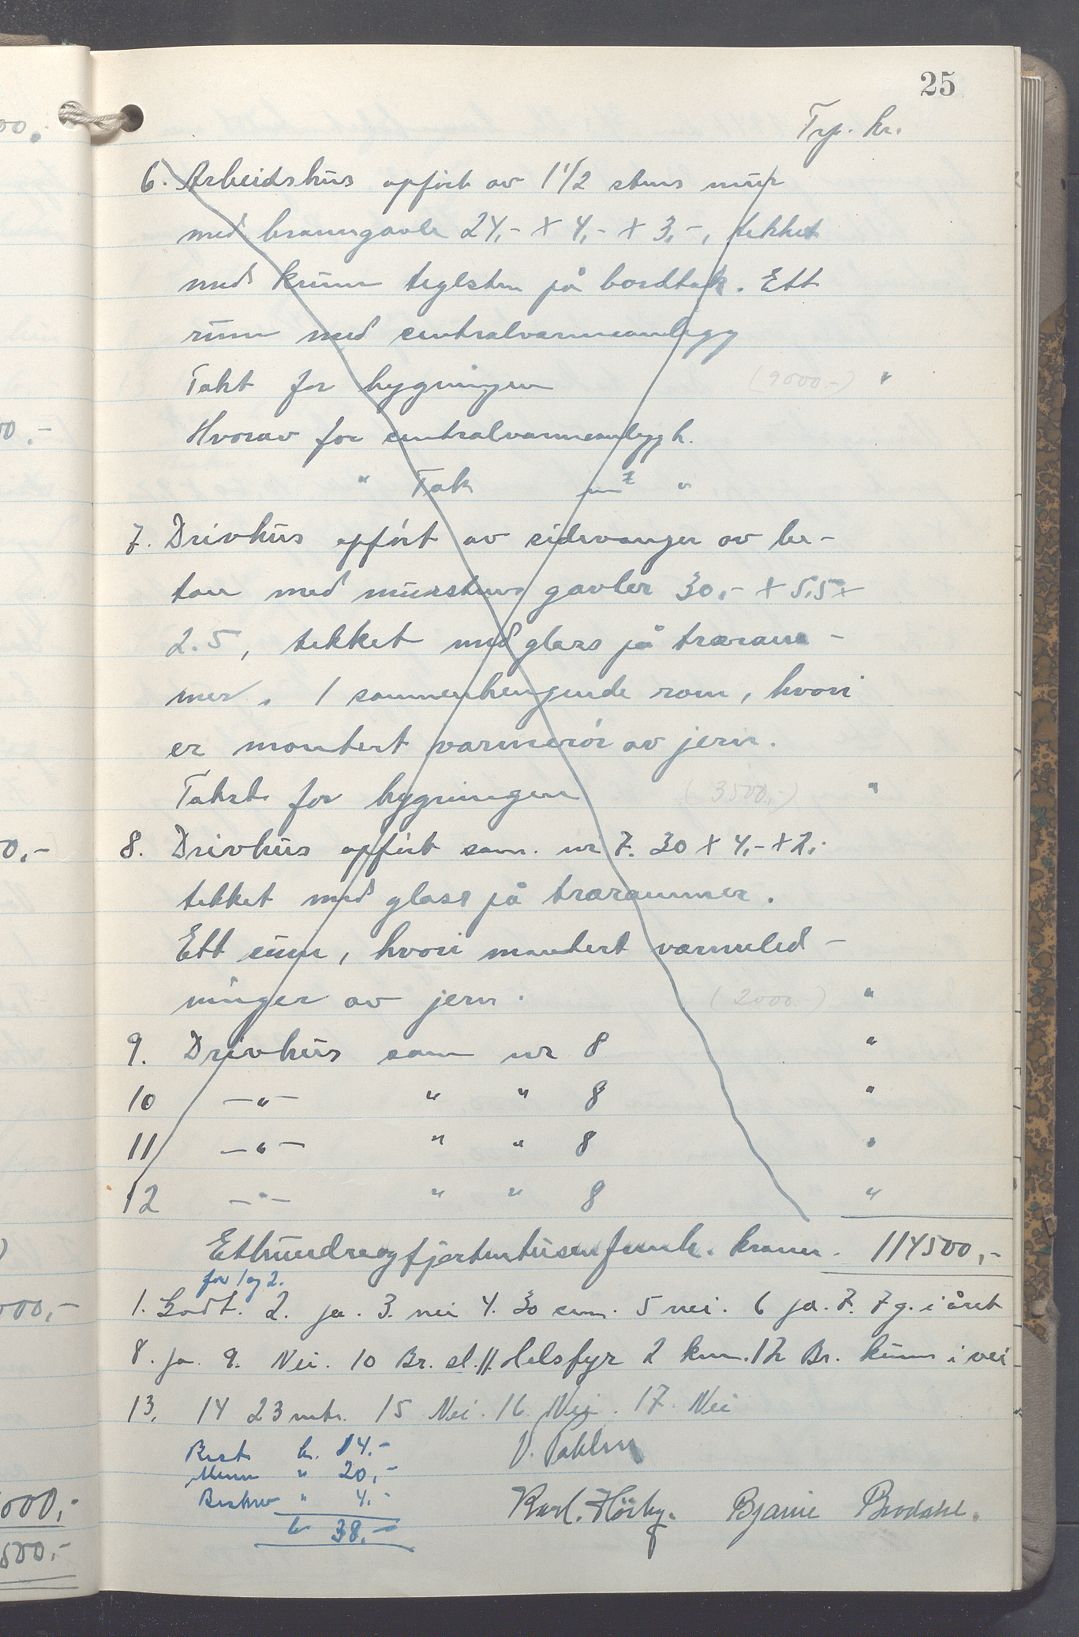 25
Trp. kr.
6. Arbeidshus opfört av 1 1/2 stens mur
med branngavle 24,- x 4,- x 3,-, tekket
med krum teglsten på bordtak. Ett
rum med centralvarmeanlegg
Takt for bygningen (9000.-) "
Hvorav for centralvarmeanlegg k.
" Tak m² "
7. Drivhus opfört av sidevanger av be-
ton med murstens gavler 30,- x 5,5 x
2.5, tekket med glass på træram-
mer. 1 sammenhengende rom, hvori
er montert varmerör av jern.
Takst for bygningen (3500,-) "
8. Drivhus opfört som nr 7. 30 x 4,- x 2,-
tekket med glass på trærammer.
Ett rum, hvori montert varmeled-
ninger av jern. (2000.-) "
9. Drivhus som nr 8 "
10 -"- " " 8 "
11 -"- " " 8 "
12 -"- " " 8 "
Etthundreogfjortentusenfemh. kroner. 114500,-
for 1 og 2.
1. Godt. 2. ja. 3. nei 4. 30 cm. 5 nei. 6 ja. 7. 7 g. i året
8. ja. 9. Nei. 10 Br. st. 11. Helsfyr 2 km. 12 Br. kum i vei
13. 14 23 mtr. 15 Nei. 16 Nei. 17. Nei
Best kr. 14.-
" 20,-
Beskrev " 4.-
kr 38.-
Karl. Hörby. Bjarne Brodahl.
000.
00.-
0,-
000,-
000,-
500.-